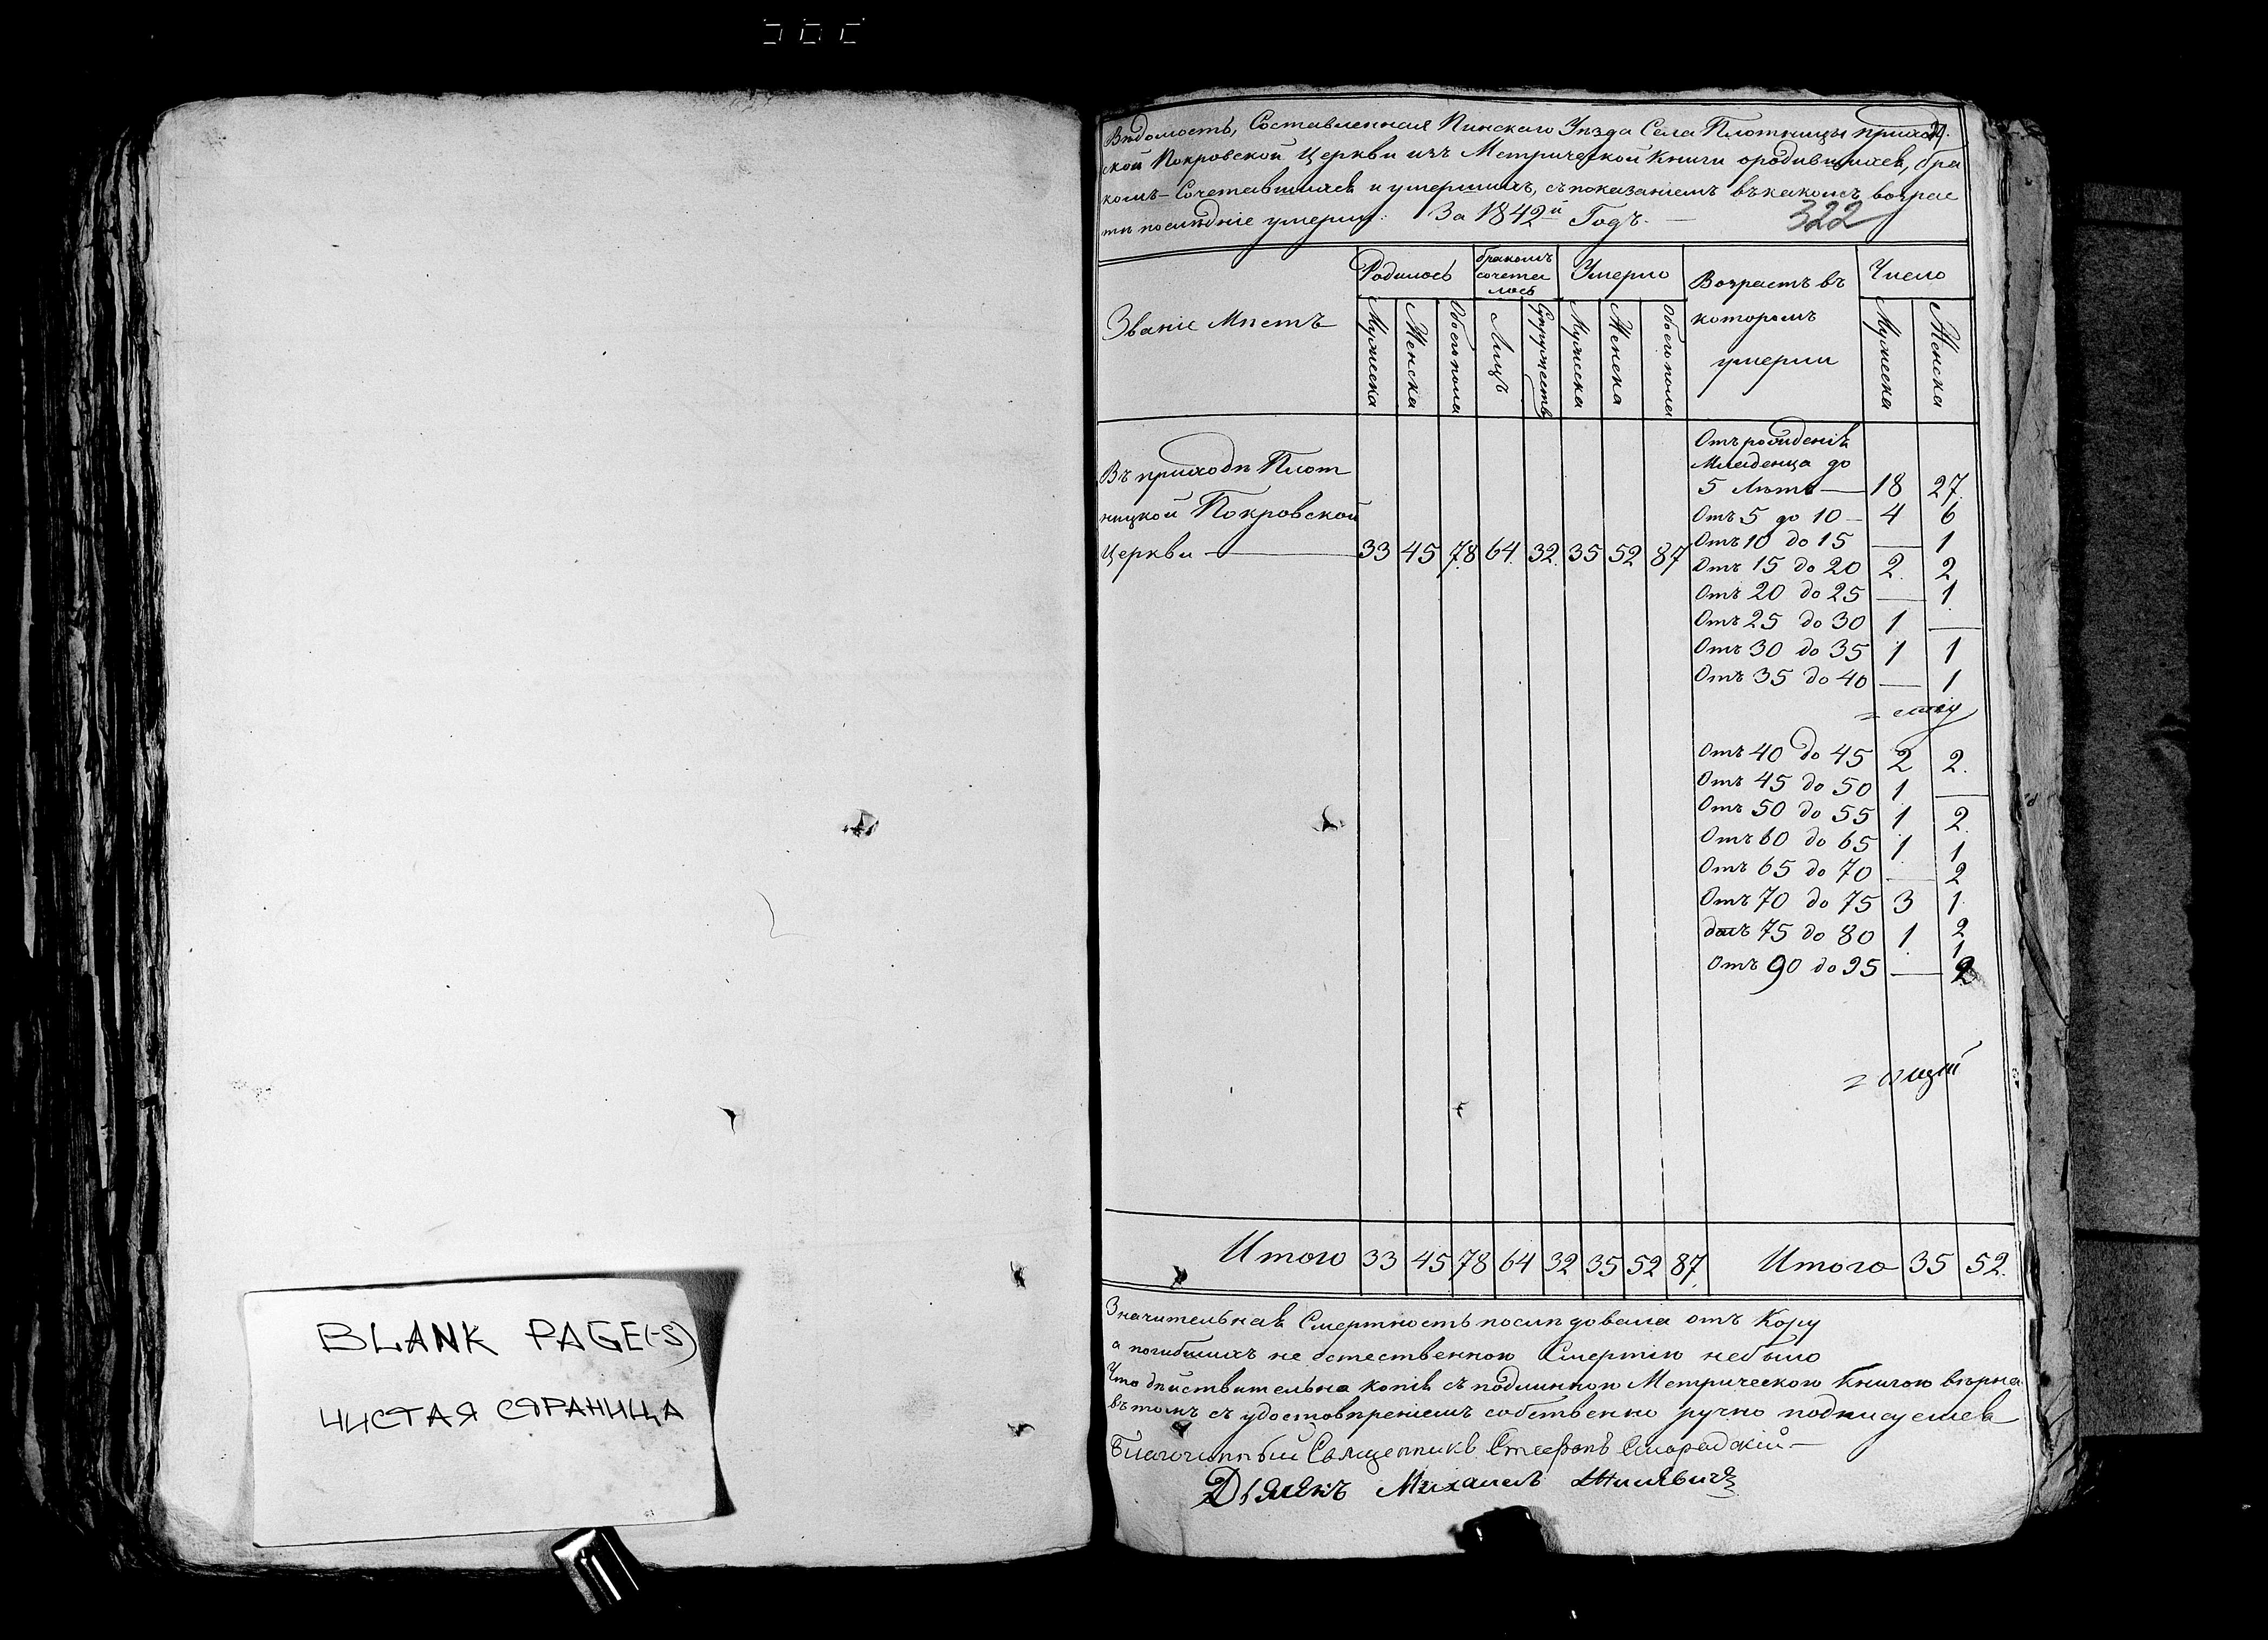 BLANK PAGE(-S)
ЧИСТАЯ СТРАНИЦА
Вѣдомость, Составленная Пинскаго Уѣзда Села Плотницы приход
ской Покровской Церкви изъ Метрической Книги ородившихся, бра
комъ-Сочетавшихся и умершихъ, съ показаніемъ въ какомъ возрас
тѣ послѣдніе умерли: За 1842й Годъ.
322
Званіе Мѣстъ
Родилось
бракомъ сочета лось
Умерло
Возрастъ въ которомъ умерли
Число
Мужеска Женска Обоего пола Лицъ Супружествъ Мужеска Женска Обоего пола Мужеска Женска
Въ приходѣ Плот
ницкой Покровской
Церкви — 33 45 78 64 32 35 52 87
Отъ рожденія
Младенца до
5 лѣтъ — 18 27
Отъ 5 до 10 — 4 6
Отъ 10 до 15 — 1
Отъ 15 до 20 2 2
Отъ 20 до 25 — 1
Отъ 25 до 30 1 —
Отъ 30 до 35 1 1
Отъ 35 до 40 — 1
Отъ 40 до 45 2 2
Отъ 45 до 50 1 —
Отъ 50 до 55 1 2
Отъ 60 до 65 1 1
Отъ 65 до 70 — 2
Отъ 70 до 75 3 1
75 до 80 1 2
Отъ 90 до 95 — 1
Итого 33 45 78 64 32 35 52 87 Итого 35 52
Значительная Смертность послѣдовала отъ Кору
а погибшихъ не естественною Смертію небыло
Что дѣйствительна копія съ подлинною Метрическою Книгою вѣрна
въ томъ съ удостовѣреніемъ собственно ручно подписуемся
Благочинный Священникъ Стефанъ Смородскій
Дьячекъ Михаилъ